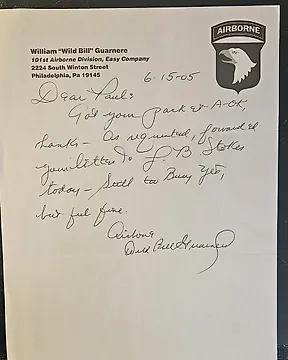 AIRBORNE
William "Wild Bill" Guarnere
101st Airborne Division, Easy Company
2224 South Winton Street
Philadelphia, Pa 19145
6-15-05
Dear Paul:
Got your packet A-OK,
thanks - As requested, forwarded
your letter to J. B. Stokes
today - Still too Busy yet,
but feel fine.
Airborne
Wild Bill Guarnere